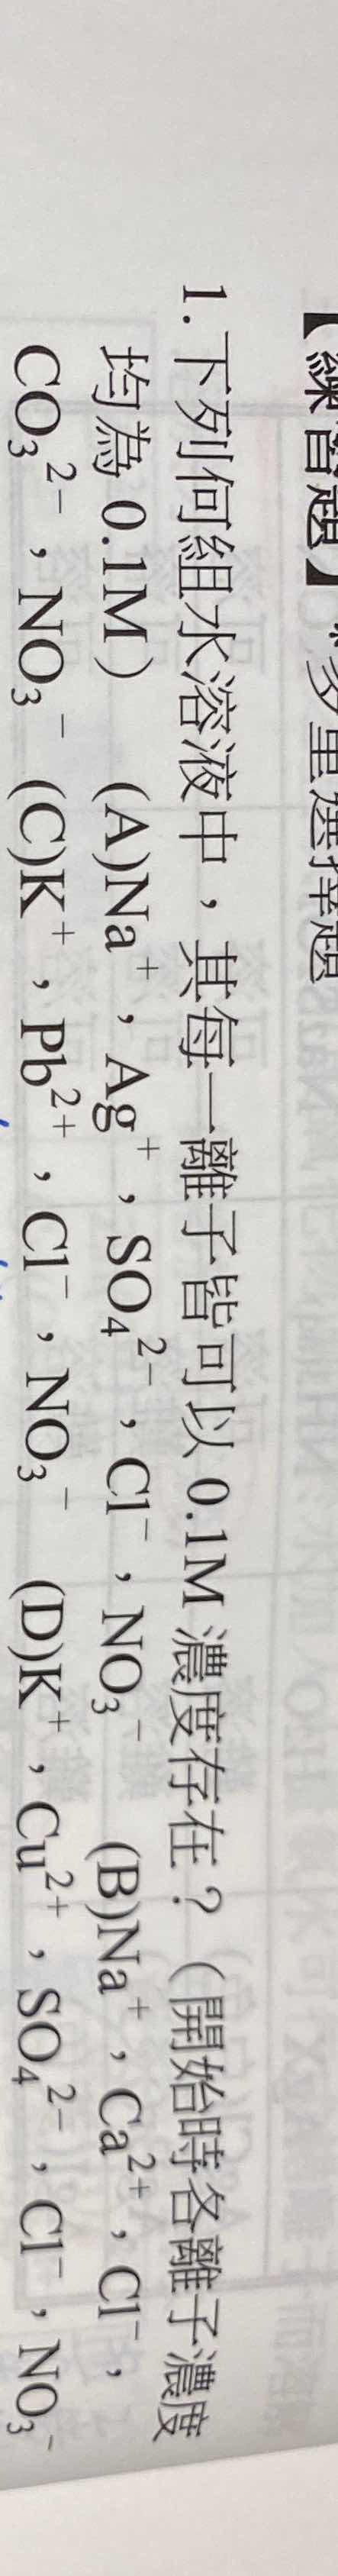 【練習題】*多重選擇題
1.下列何組水溶液中，其每一離子皆可以 0.1M 濃度存在？（開始時各離子濃度
均為 0.1M） (A)Na⁺，Ag⁺，SO₄²⁻，Cl⁻，NO₃⁻ (B)Na⁺，Ca²⁺，Cl⁻，
CO₃²⁻，NO₃⁻ (C)K⁺，Pb²⁺，Cl⁻，NO₃⁻ (D)K⁺，Cu²⁺，SO₄²⁻，Cl⁻，NO₃⁻